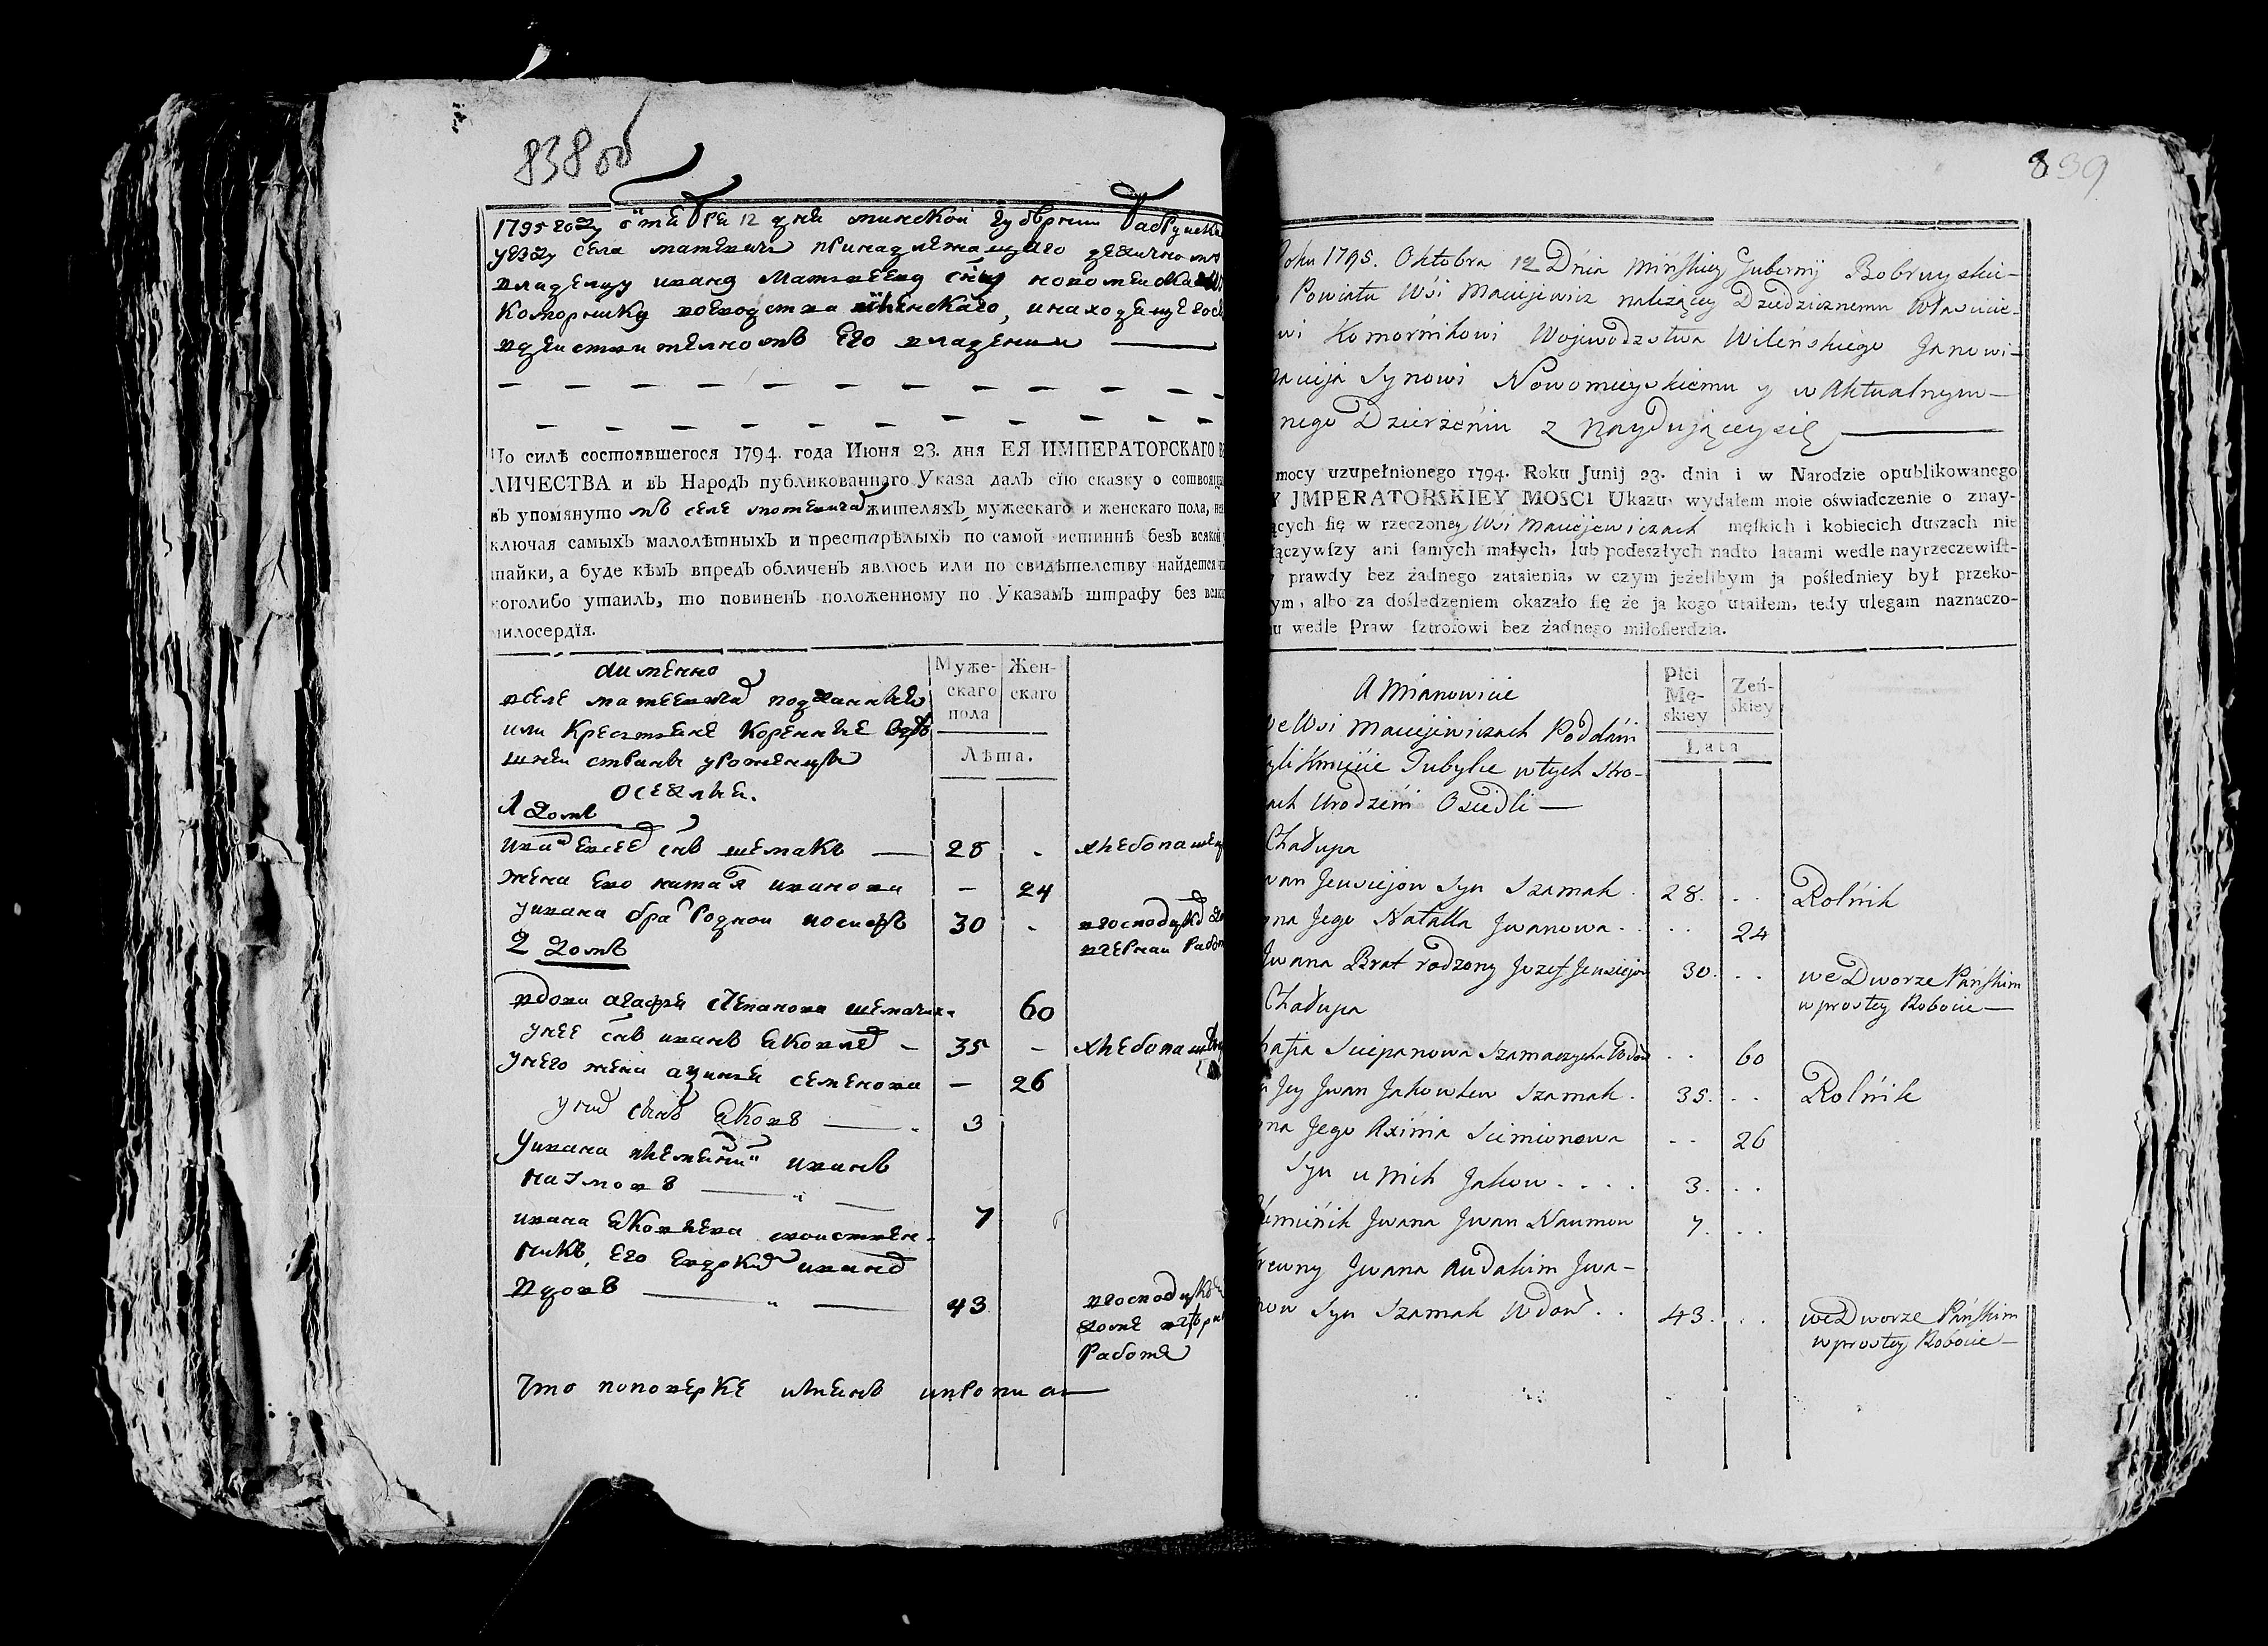 838 об
1795 году октебре 12 дня минской губернии бабруиска
уезду села матевичь принадлежащаго дедично му
владелцу ивану Матвееву сну новомеиска
Коморнику воеводства виленскаго, инаходещегосе
вдеиствителномъ Его владении
По силѣ состоявшегося 1794. года Июня 23. дня ЕЯ ИМПЕРАТОРСКАГО ВЕ
ЛИЧЕСТВА и въ НародЪ публикованнаго Указа далЪ сїю сказку о состоящи
въ упомянуто мъ селе матевичах жителяхЪ мужескаго и женскаго пола, не
ключая самыхЪ малолѣтныхЪ и престарѣлыхЪ по самой истиннѣ безЪ всякой у
тайки, а буде кѣмЪ впредЪ обличенЪ явлюсь или по свидѣтелству найдется
коголибо утаилЪ, то повиненЪ положенному по УказамЪ штрафу без всяка
милосердїя.
аименно
Муже-
скаго
пола
Жен-
скаго
Лѣта.
вселе матеевичах подданные
или Крестьяне Коренные въ
шнеи страны уроженцы
оседлые.
1 домъ
иван евсеев снъ шемакъ 28 - хлебопашец
жена ево наталя иванова - 24
уивана брат Роднои иосифъ 30 - вгосподцком
вчернаи Рабо
2 домъ
вдова агафея степанова шемачиха 60
унее снъ иванъ яковлев - 35 - хлебопашец
унего жена адинея семенова - 26
у них сынъ яковъ 3
уивана племянник иванъ
наумовъ 7
ивана яковлева своиствен-
никъ, его евдоким иванов
вдовъ 43 вгосподцком
доме вчерна
Работе
Что поповерке
839
oku 1795. Oktobra 12 Dnia Mińskiey Gubernij Bobruyskie-
Powiatu Wsi Maciejewicz należącey Dziedzicznemu Właścicie-
wi Komorńikowi Wojewodztwa Wileńskiego Janowi-
acieja Synowi Nowomieyskiemu y w Aktualnym-
nego Dzierżeńiu z nayduiącey się
mocy uzupełnionego 1794. Roku Junij 23. dnia i w Narodzie opublikowanego
Y JMPERATORSKIEY MOSCI Ukazu, wydałem moie oświadczenie o znay-
ących się w rzeczoney Wsi Maciejewiczach męskich i kobiecich duszach nie
ączywszy ani samych małych, lub podeszłych nadto latami wedle nayrzeczewist-
prawdy bez żadnego zataienia, w czym jeżelibym ja poślednìey był przeko-
ym, albo za dośledzeniem okazało się że ja kogo utaiłem, tedy ulegam naznaczo-
u wedle Praw sztrofowi bez żadnego miłosierdzia.
A Mianowicie
Płci
Mę-
skiey
Zeń-
skiey
Lata
we Wsi Maciejewiczach Poddańi
yli Kmiecie Tubylce w tych stro-
ach Urodzeńi Osiedli
Chałupa
wan Jewsiejow Syn Szamak . 28. . . Rolńik
ona Jego Natalla Jwanowa . . . 24
Jwana Brat rodzony Jozef Jewsiejow 30. . . we Dworze Pańskim
w prostey Robocie
Chałupa
hafia Sciepanowa Szamaczycha Wdowa . . 60
Jey Jwan Jakowlew Szamak . 35. . . Rolńik
ona Jego Axinia Siemionowa - - 26
Syn u Nich Jakow . . . . 3. . .
lemieńik Jwana Jwan Naumow 7. . .
rewny Jwana Audakim Jwa-
now Syn Szamak Wdow . . 43. . . we Dworze Pańskim
w prostey Robocie